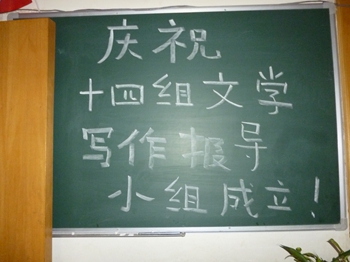 庆祝
十四组文学
写作报导
小组成立!